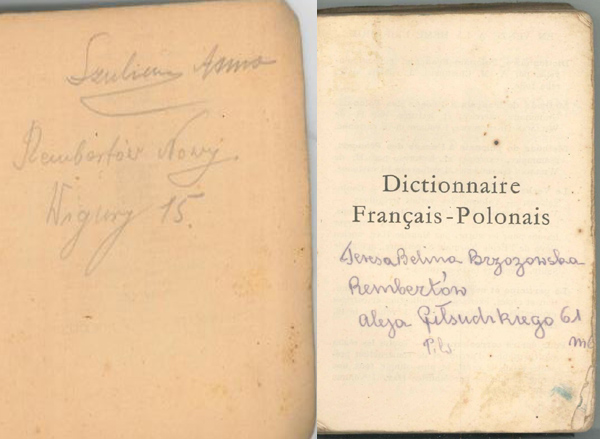 Szulim Asms
Rembertów Nowy
Wigury 15.
Dictionnaire
Français-Polonais
Teresa Belina Brzozowska
Rembertów
aleja Piłsudskiego 61
Pils
m6